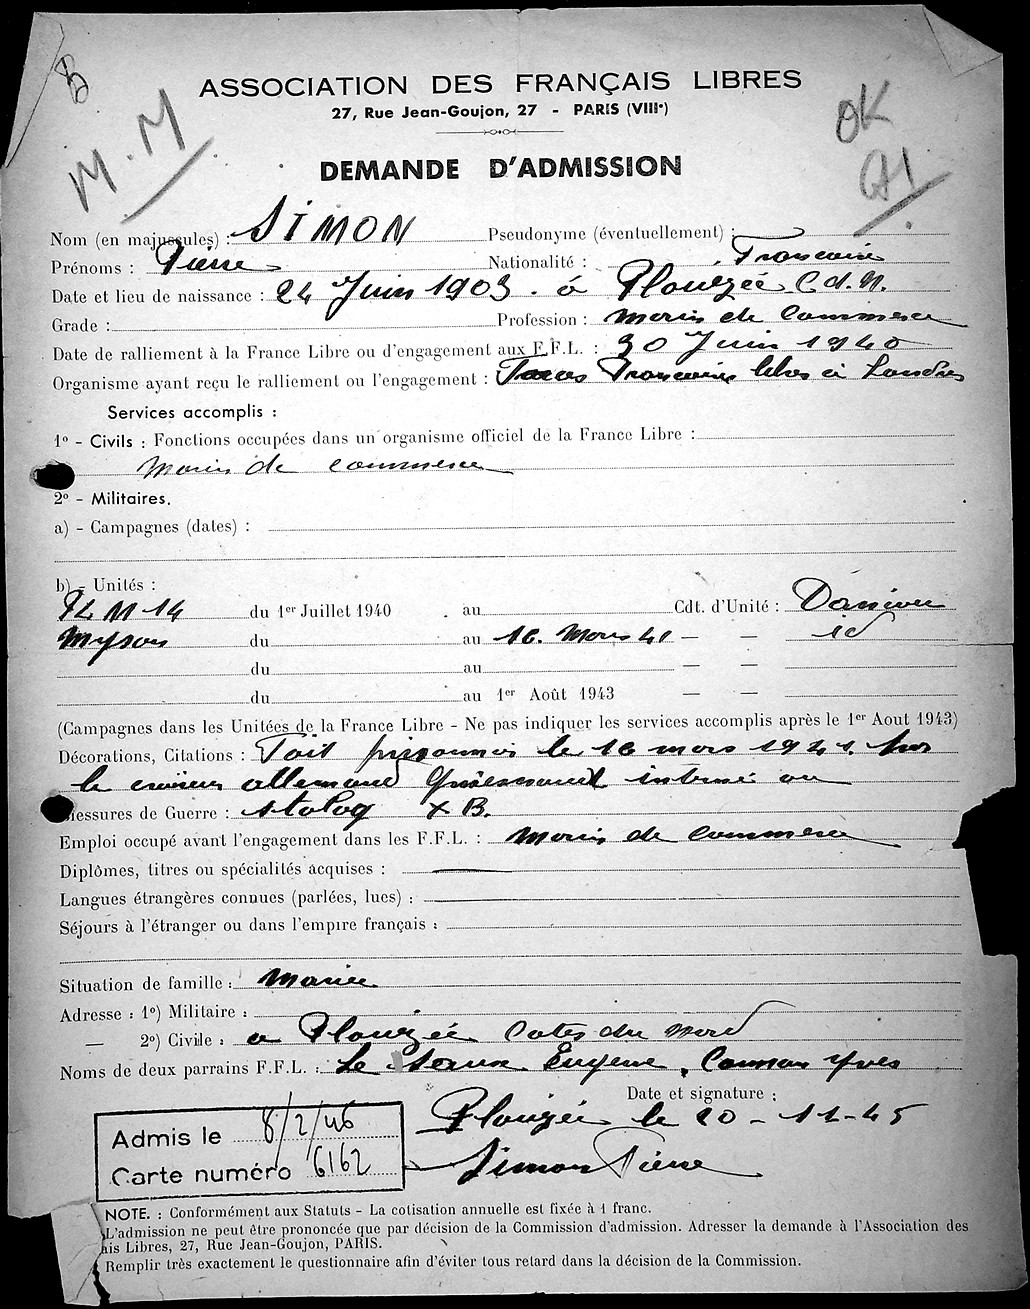 B
ASSOCIATION DES FRANÇAIS LIBRES
27, Rue Jean-Goujon, 27 - PARIS (VIIIe)
M.M
OK
DEMANDE D'ADMISSION
Nom (en majuscules) : SIMON Pseudonyme (éventuellement) :
Prénoms : Pierre Nationalité : Française
Date et lieu de naissance : 24 Juin 1903. à Plouézec C d. N.
Grade : Profession : Marin de Commerce
Date de ralliement à la France Libre ou d'engagement aux F.F.L. : 30 Juin 1940
Organisme ayant reçu le ralliement ou l'engagement : Forces Françaises libres à Londres
Services accomplis :
1o - Civils : Fonctions occupées dans un organisme officiel de la France Libre :
Marin de commerce
2o - Militaires.
a) - Campagnes (dates) :
b) - Unités :
14 du 1er Juillet 1940 au Cdt. d'Unité :
Myson du au 16. Mars 41 — — id
du au — —
du au 1er Août 1943 — —
(Campagnes dans les Unitées de la France Libre - Ne pas indiquer les services accomplis après le 1er Aout 1943)
Décorations, Citations : Fait prisonnier le 16 mars 1941. sur
le croiseur allemand interné au
Blessures de Guerre : stalag X B.
Emploi occupé avant l'engagement dans les F.F.L. : Marin de Commerce
Diplômes, titres ou spécialités acquises :
Langues étrangères connues (parlées, lues) :
Séjours à l'étranger ou dans l'empire français :
Situation de famille : Marié
Adresse : 1o) Militaire :
— 2o) Civile : à Plouézec Cotes du Nord
Noms de deux parrains F.F.L. : Le Eugène, Connan Yves
Date et signature :
Plouézec le 20-11-45
Admis le 8/2/46
Carte numéro 6162
Simon Pierre
NOTE. : Conformément aux Statuts - La cotisation annuelle est fixée à 1 franc.
L'admission ne peut être prononcée que par décision de la Commission d'admission. Adresser la demande à l'Association des
ais Libres, 27, Rue Jean-Goujon, PARIS.
Remplir très exactement le questionnaire afin d'éviter tous retard dans la décision de la Commission.